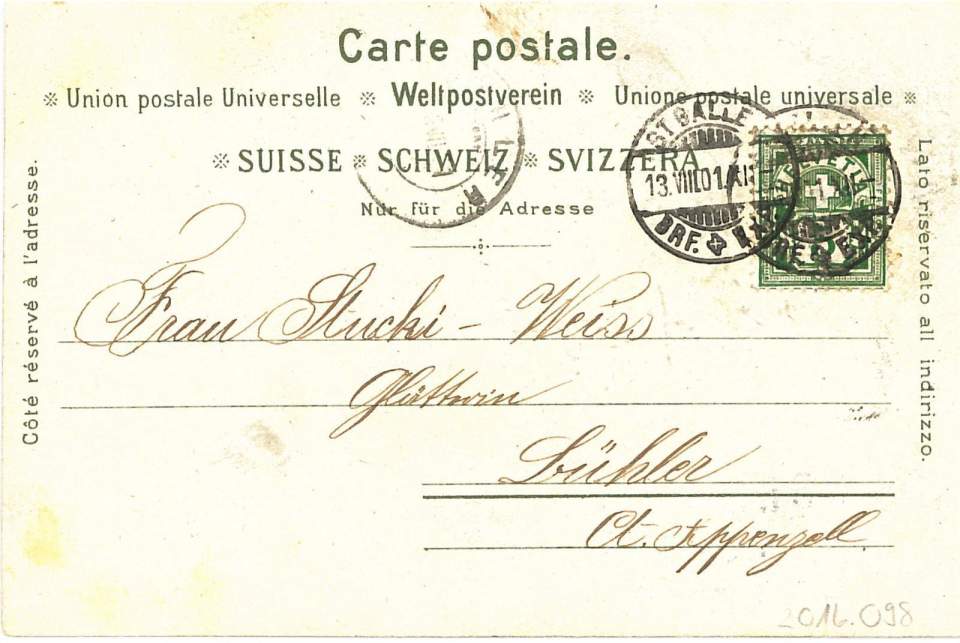 Carte postale.
※ Union postale Universelle ※ Weltpostverein ※ Unione postale universale ※
※ SUISSE ※ SCHWEIZ ※ SVIZZERA
Nur für die Adresse
ST. GALLEN
13.VIII.01.XII
BRF.
HELVETIA
Côté réservé à l'adresse.
Lato riservato all indirizzo.
Frau Stucki - Weiss
Glättrin
Bühler
Ct. Appenzell
2016.098